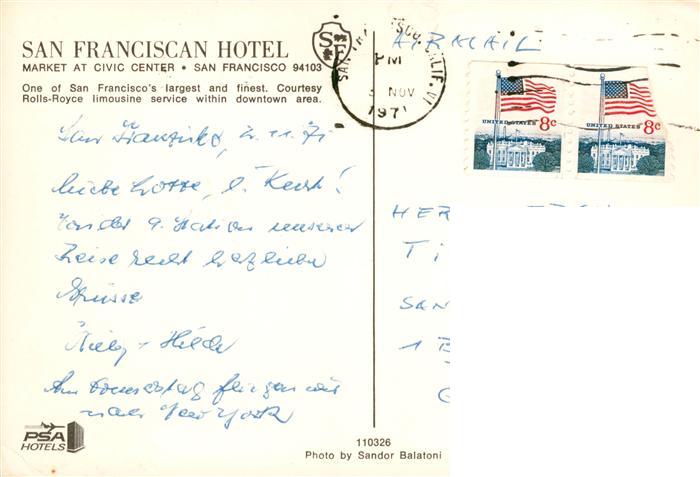 SAN FRANCISCAN HOTEL
MARKET AT CIVIC CENTER • SAN FRANCISCO 94103
One of San Francisco's largest and finest. Courtesy
Rolls-Royce limousine service within downtown area.
San Franzisko, 2.11.71
Liebe Lotte, l. Kurt!
Von der 9. Station unserer
Reise recht herzliche
Grüsse
+ Hilde
Am Donnerstag fliegen wir
nach New York
PSA
HOTELS
110326
Photo by Sandor Balatoni
SF
PM
NOV
1971
AIRMAIL
UNITED STATES 8c
UNITED STATES 8c
HER
TI
SAN
1